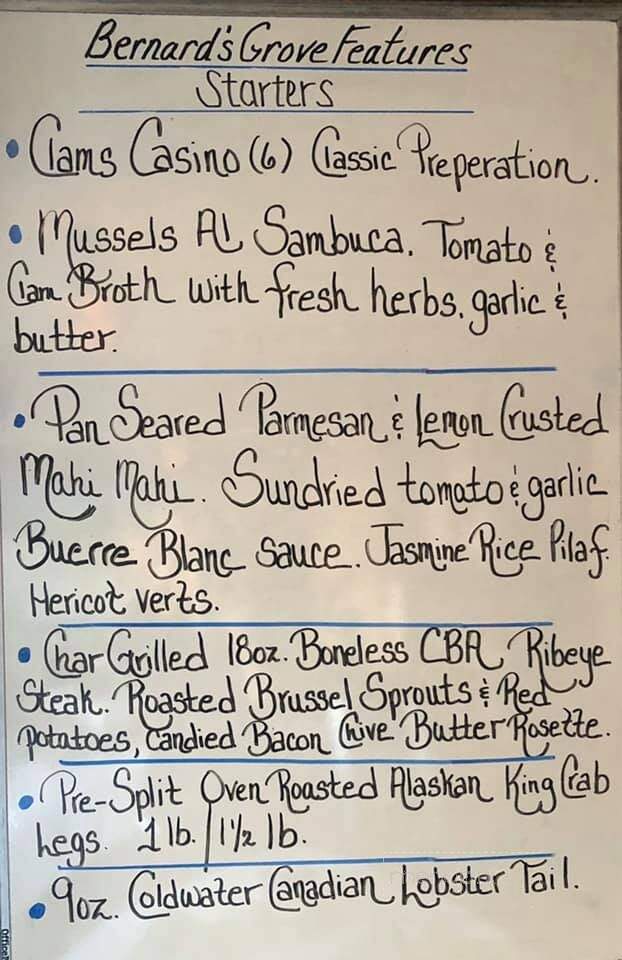 Bernard's Grove Features
Starters
• Clams Casino (6) Classic Preperation.
• Mussels Al Sambuca. Tomato &
Clam Broth with fresh herbs, garlic &
butter.
• Pan Seared Parmesan & Lemon Crusted
Mahi Mahi. Sundried tomato & garlic
Buerre Blanc sauce. Jasmine Rice Pilaf.
Hericot verts.
• Char Grilled 18oz. Boneless CBA Ribeye
Steak. Roasted Brussel Sprouts & Red
potatoes, Candied Bacon Chive Butter Rosette.
• Pre-Split Oven Roasted Alaskan King Crab
Legs. 1 lb. / 1 1/2 lb.
• 9oz. Coldwater Canadian Lobster Tail.